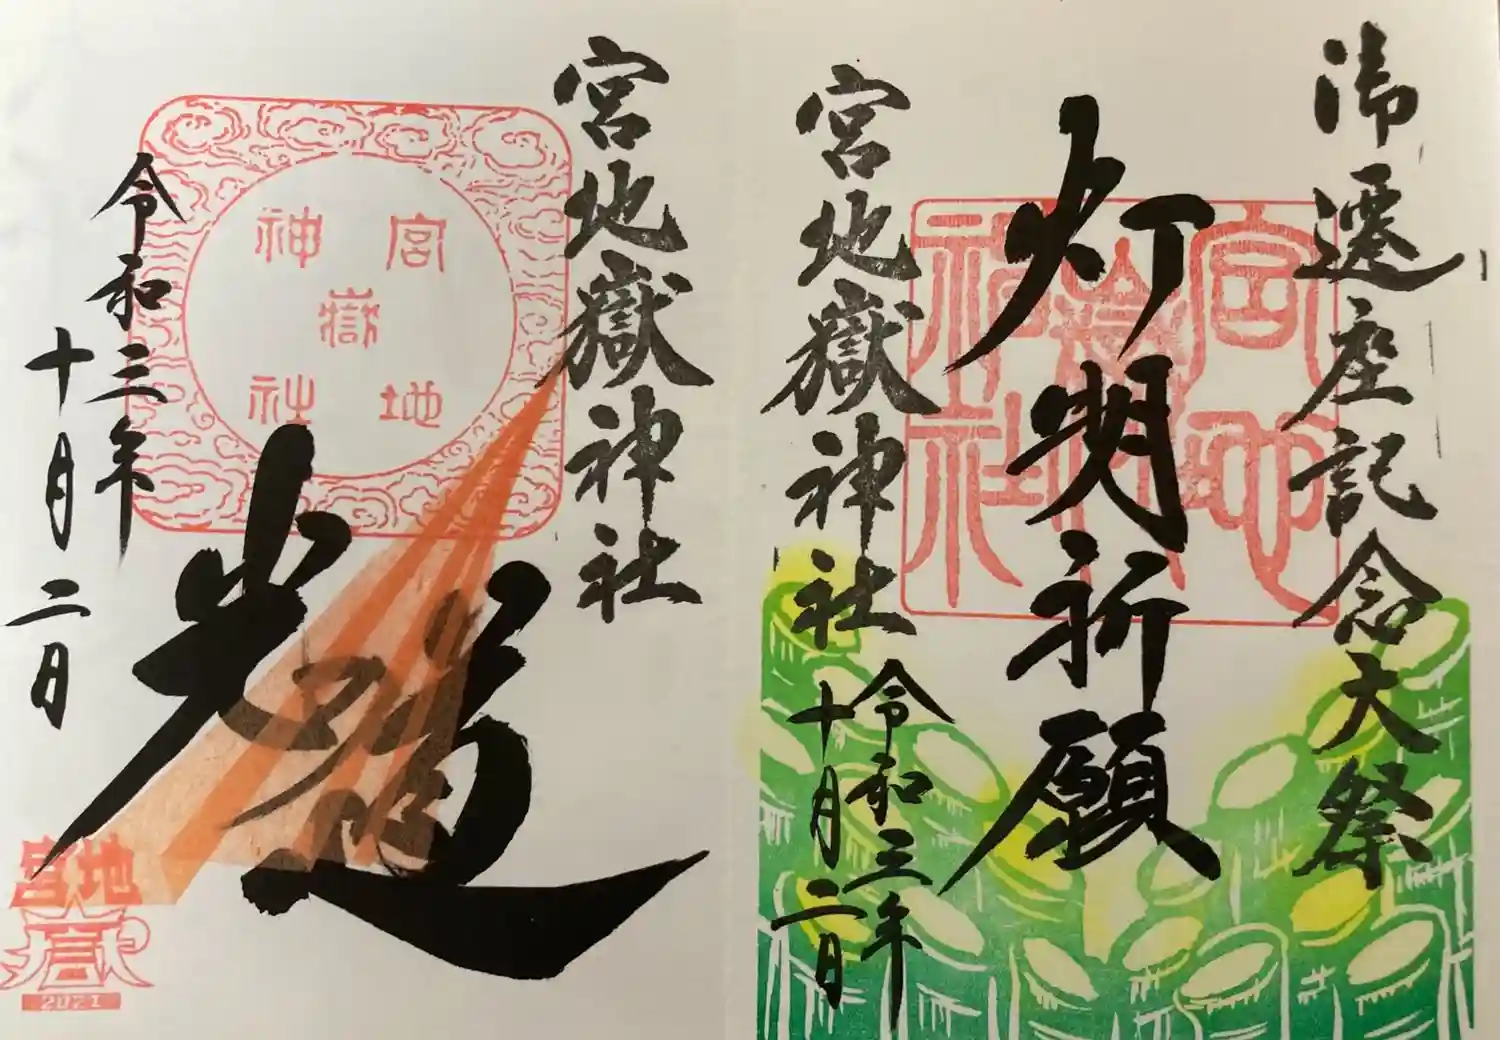 御遷座記念大祭
灯明祈願
宮地嶽神社
令和三年
十月二日
宮地嶽神社
宮地嶽神社
光道
宮地嶽神社
令和三年
十月二日
宮地
嶽
2021